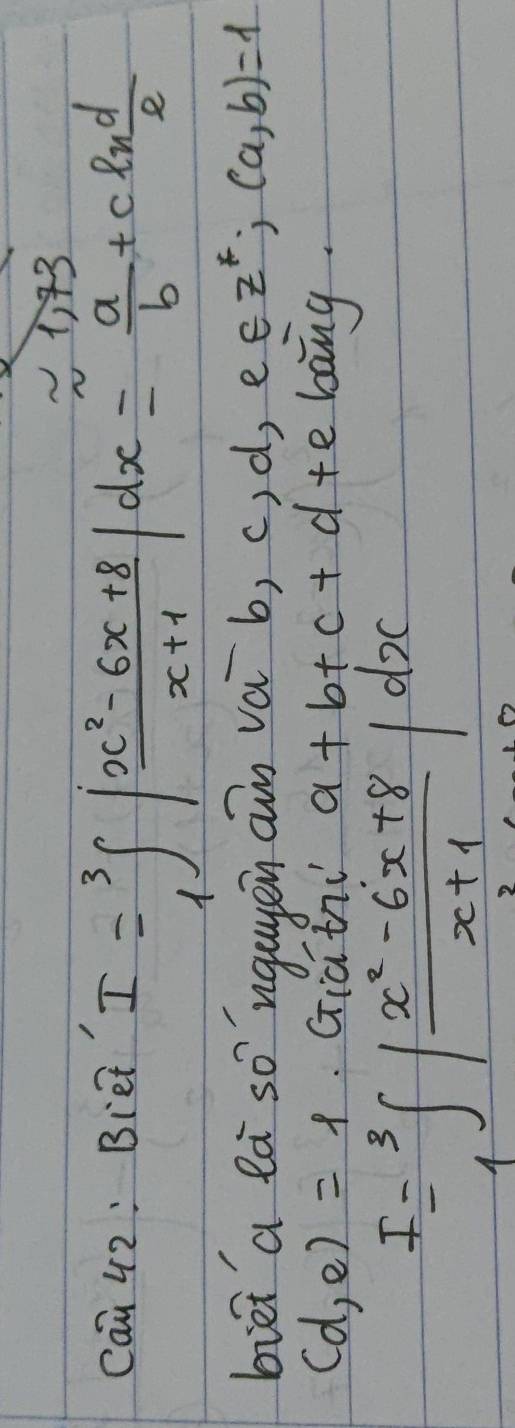 ≈ 1,73
Câu 42: Biết I = ₁∫³ |x² - 6x + 8 / x + 1| dx = a/b + c ln d/e
biết a là số nguyên âm và b, c, d, e ∈ Z*; (a, b) = 1
(d, e) = 1. Giá trị a + b + c + d + e bằng.
I = ₁∫³ |x² - 6x + 8 / x + 1| dx